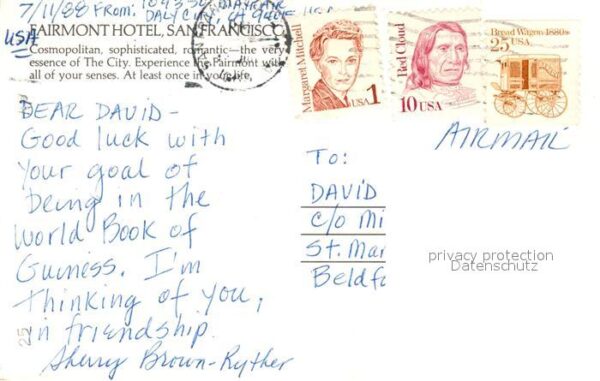 7/11/88 FROM:
DALY CITY, CA
USA
FAIRMONT HOTEL, SAN FRANCISCO
Cosmopolitan, sophisticated, romantic—the ver
essence of The City. Experience the Fairmont with
all of your senses. At least once in your life.
Margaret Mitchell
USA 1
Red Cloud
10 USA
Bread Wagon 1880s
25 USA
AIRMAIL
DEAR DAVID-
Good luck with
your goal of
being in the
World Book of
Guiness. I'm
thinking of you,
in friendship.
Sherry Brown-Ryther
To:
DAVID
c/o Mi
St. Mar
Beldfo
privacy protection
Datenschutz
25